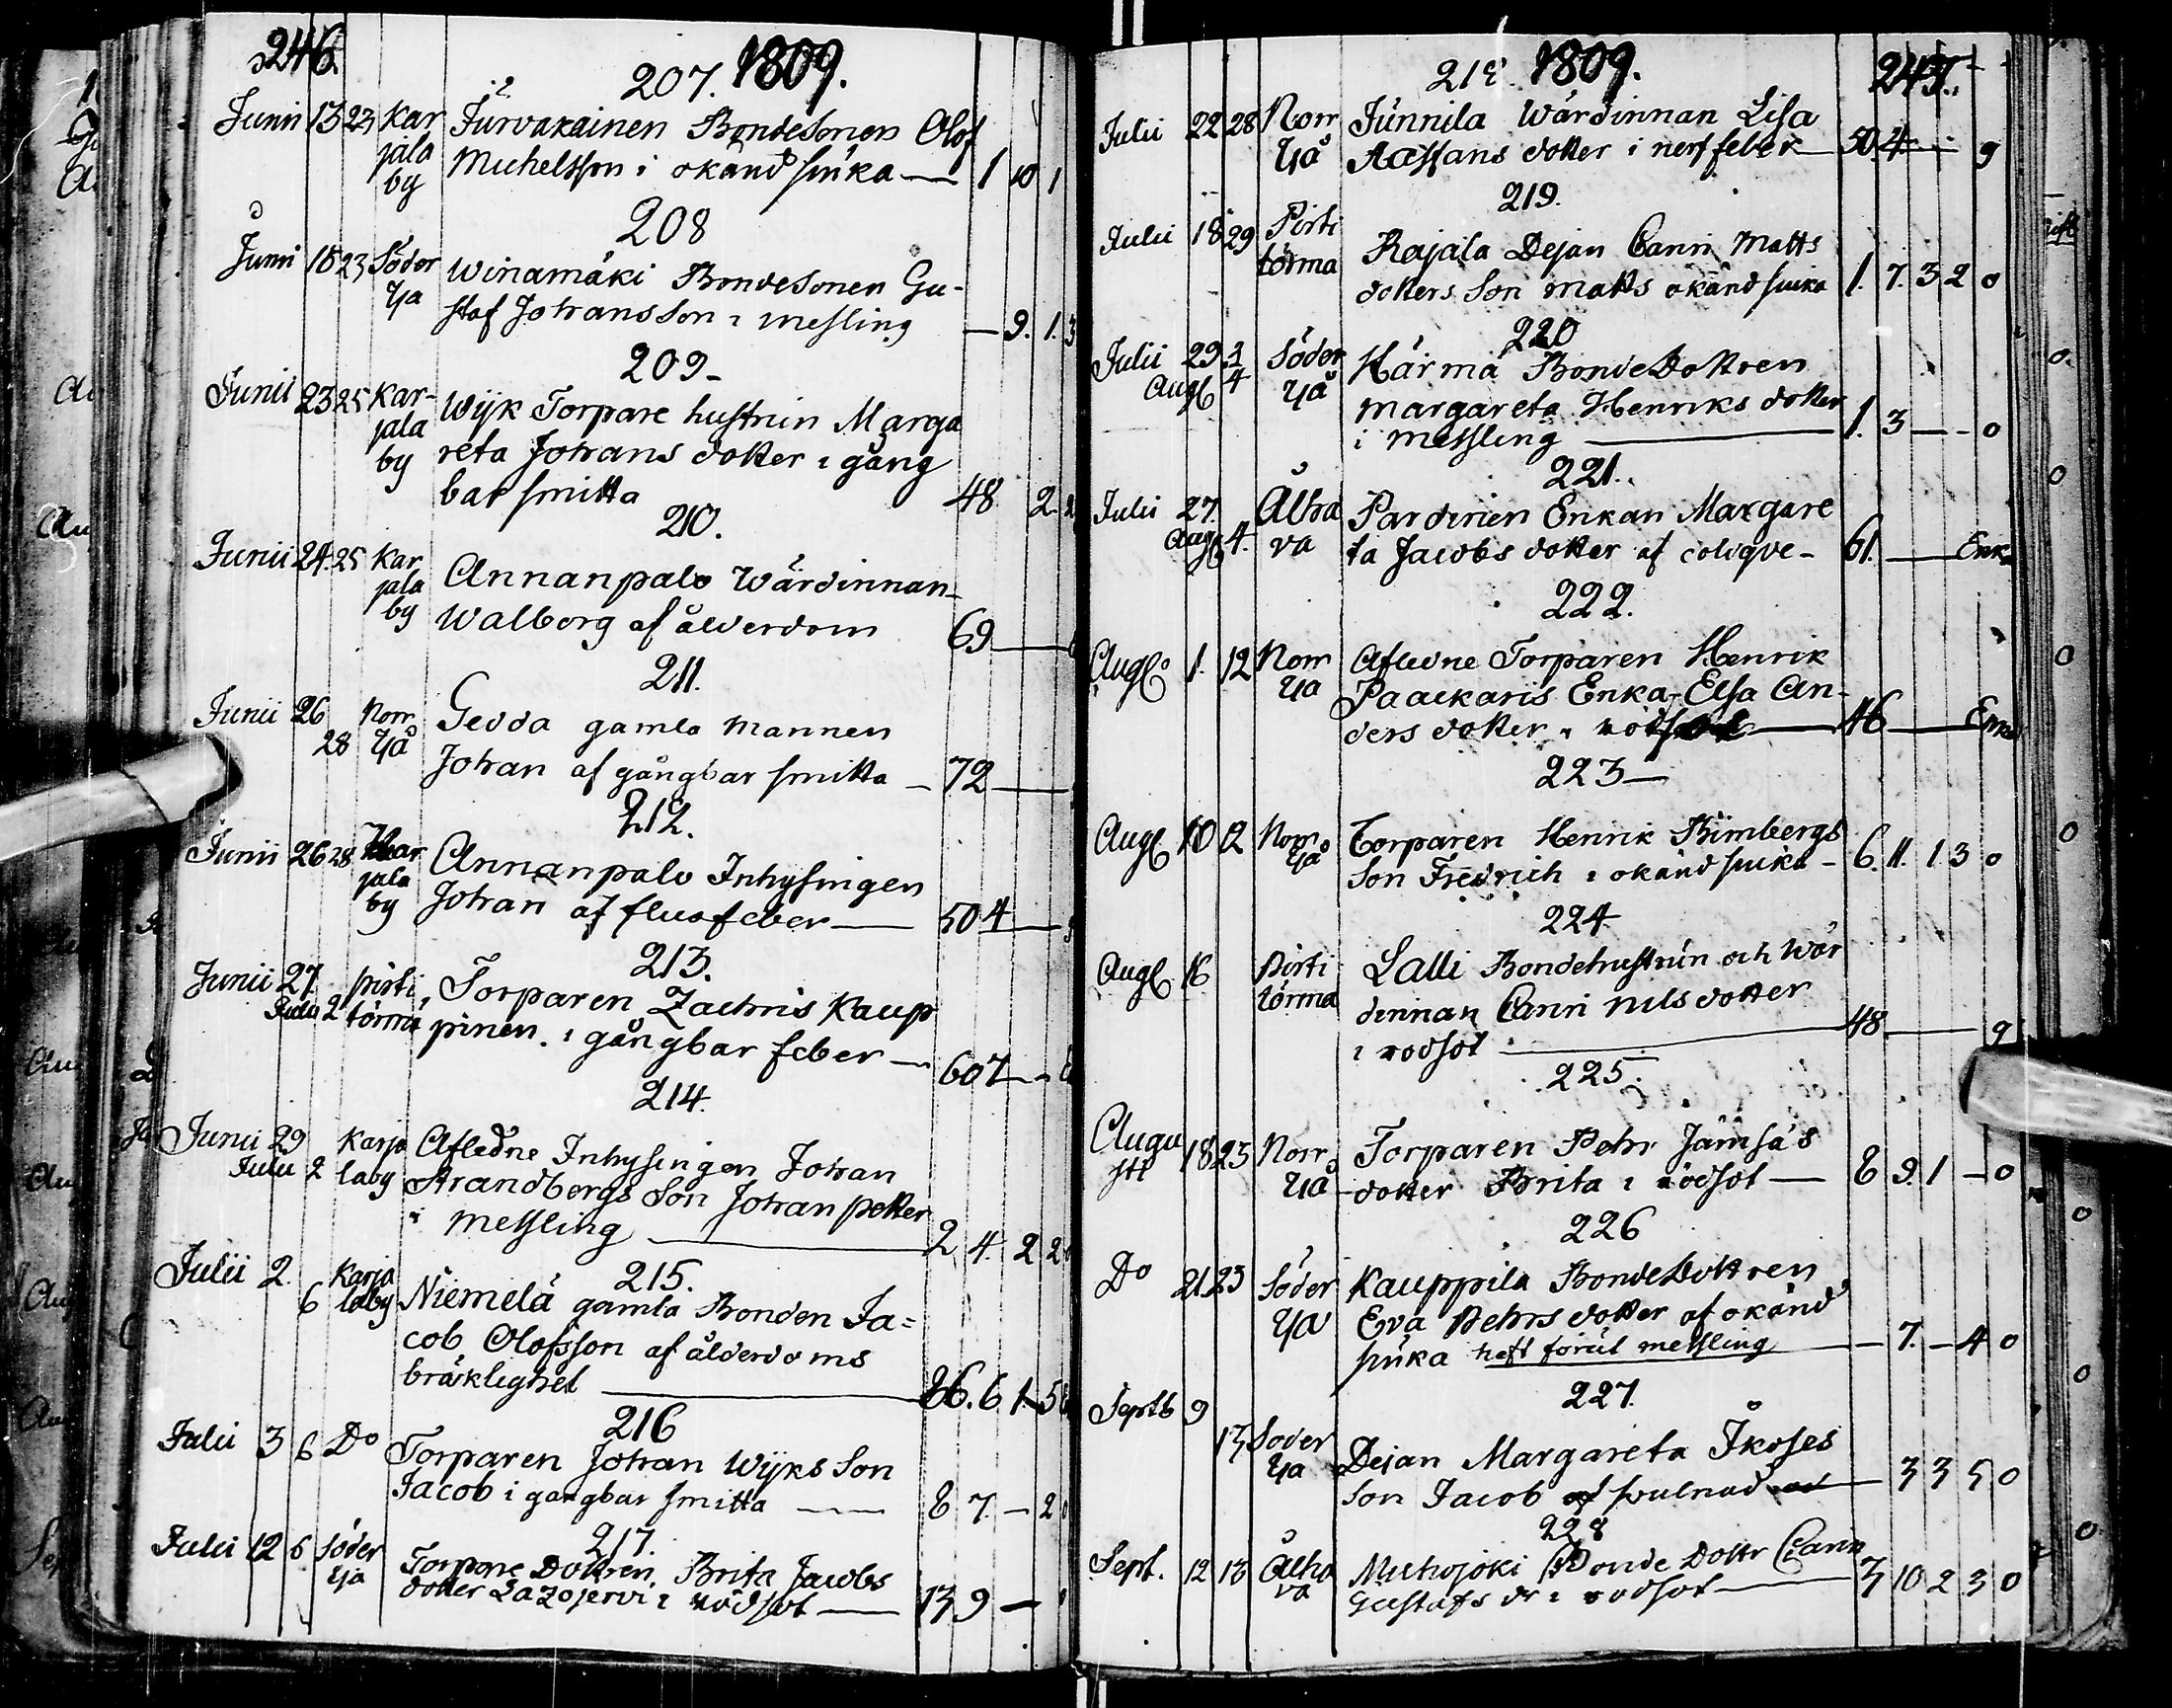 246.
207. 1809.
Junii 13 23 Kar Jurvakainen Bondesonen Olof
jala Michelsson i okänd siuka — 1 10 1
by
208
Junii 18 23 Söder Winamäki Bondesonen Gu-
Yja staf Johansson i messling — 9. 1. 3
209-
Junii 23 25 Kar- Wijk Torpare hustrun Marga
jala reta Johans dotter i gång
by bar smitta 48 2
210.
Junii 24. 25 Kar Annanpalo Wärdinnan
jala Walborg af ålderdom 69 —
by
211.
Junii 26 Norr Gedda gamla mannen
28 Yå Johan af gångbar smitta — 72 —
212.
Junii 26 28 Kar Annanpalo Inhysingen
jala Johan af flusfeber — 50 4 —
by
213.
Junii 27 pirti Torparen Zachris Kaup
Julii 2 törmä pinen i gångbar feber — 60 7 — -
214.
Junii 29 Karja Afledne Inhysingen Johan
Julii 2 laby Strandbergs Son Johan petter
i messling — 2 4. 2 2
215.
Julii 2. Karja Niemelä gamla Bonden Ja=
6 laby cob Olofsson af ålderdoms
bräcklighet — 86. 6 1 - 5
216
Julii 3 6 Do Torparen Johan Wijks Son
Jacob i gangbar smitta — 8 7. — 2
217.
Julii 12 6 Söder Torpare Dottren Brita Jacobs
Yja dotter Lazojervi i rödsot — 13 9 —
218. 1809. 247.
Julii 22 28 Norr Junnila Wärdinnan Lisa
Yå Staffans dotter i nerffeber — 50 4 — - 9
219.
Julii 18 29 Pirti Rajala Dejan Carin Matts
törmä dotters Son Matts okänd siuka 1. 7. 3 2 0
220
Julii 29 Söder Härmä BondeDottren
Aug 4 Yå Margareta Henriks dotter
i messling — 1. 3 — - 0
221.
Julii 27. Alha Pardinen Enkan Margare
Aug 4. va ta Jacobs dotter af colique - 61. — Enk
222.
Aug 1. 12 Norr Afledne Torparen Henrik
Yå Paackaris Enka Elsa An-
ders dotter i rödsot — 46 — Enk
223 —
Aug 10 12 Norr Torparen Henrik Bimbergs
Yå Son Fredrich i okänd siuka - 6. 11. 1 3 0
224
Aug 16 Pirti Lalli Bondehustrun och Wär
törmä dinnan Carin Nils dotter
i rödsot — 48 — 9
225.
Augu
sti 18 23 Norr Torparen Pehr Jämsäs
Yå dotter Brita i rödsot — 8 9. 1 — 0
226
Do 21 23 Söder Kauppila BondeDottren
Yå Eva Pehrs dotter af okänd
siuka haft förut messling — 7. — 4 0
227.
Septb 9
13 Söder Dejan Margareta Ikoses
Yå Son Jacob af swulnad — 3 3 5 0
228
Sept. 12 13 Alha Muhojoki Bonde Dottr Carin
va Gustafs dr i rödsot — 3 10 2 3 0